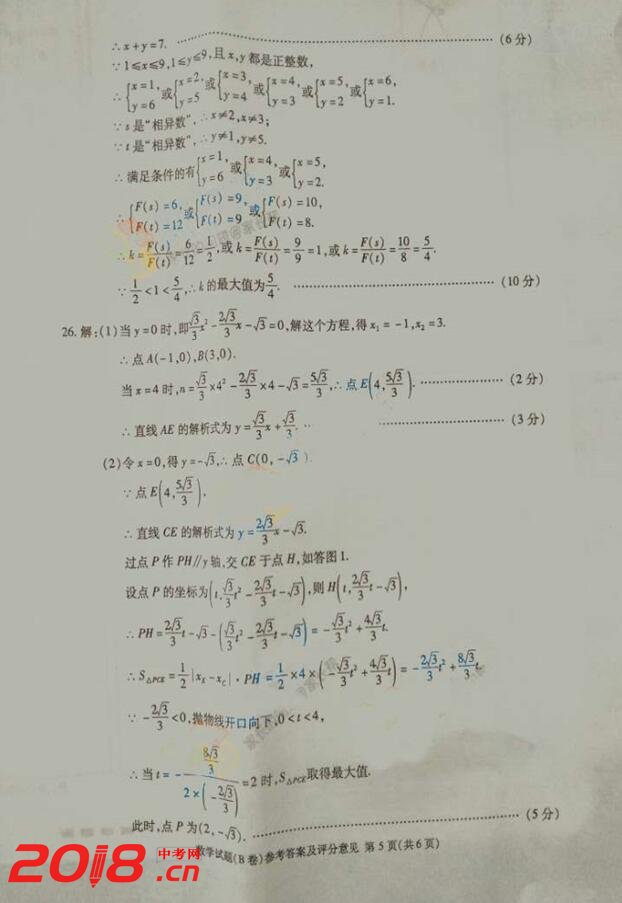 ∴x+y=7. …… (6分)
∵1≤x≤9,1≤y≤9,且x,y都是正整数,
∴{x=1, y=6 或{x=2, y=5 或{x=3, y=4 或{x=4, y=3 或{x=5, y=2 或{x=6, y=1.
∵s是“相异数”,∴x≠2,x≠3;
∵t是“相异数”,∴y≠1,y≠5.
∴满足条件的有{x=1, y=6 或{x=4, y=3 或{x=5, y=2.
∴{F(s)=6, F(t)=12 或{F(s)=9, F(t)=9 或{F(s)=10, F(t)=8.
∴k=F(s)/F(t)=6/12=1/2,或k=F(s)/F(t)=9/9=1,或k=F(s)/F(t)=10/8=5/4.
∵1/2<1<5/4,∴k的最大值为5/4. …… (10分)
26.解:(1)当y=0时,即√3/3x²-2√3/3x-√3=0,解这个方程,得x₁=-1,x₂=3.
∴点A(-1,0),B(3,0).
当x=4时,n=√3/3×4²-2√3/3×4-√3=5√3/3,∴点E(4,5√3/3). …… (2分)
∴直线AE的解析式为y=√3/3x+√3/3. …… (3分)
(2)令x=0,得y=-√3,∴点C(0,-√3)
∵点E(4,5√3/3),
∴直线CE的解析式为y=2√3/3x-√3.
过点P作PH//y轴,交CE于点H,如答图1.
设点P的坐标为(t,√3/3t²-2√3/3t-√3),则H(t,2√3/3t-√3),
∴PH=2√3/3t-√3-(√3/3t²-2√3/3t-√3)=-√3/3t²+4√3/3t.
∴S△PCE=1/2|xE-xC|·PH=1/2×4×(-√3/3t²+4√3/3t)=-2√3/3t²+8√3/3t.
∵-2√3/3<0,抛物线开口向下,0<t<4,
∴当t=-(8√3/3)/(2×(-2√3/3))=2时,S△PCE取得最大值.
此时,点P为(2,-√3). …… (5分)
数学试题(B卷)参考答案及评分意见 第5页(共6页)
2018中考网.cn